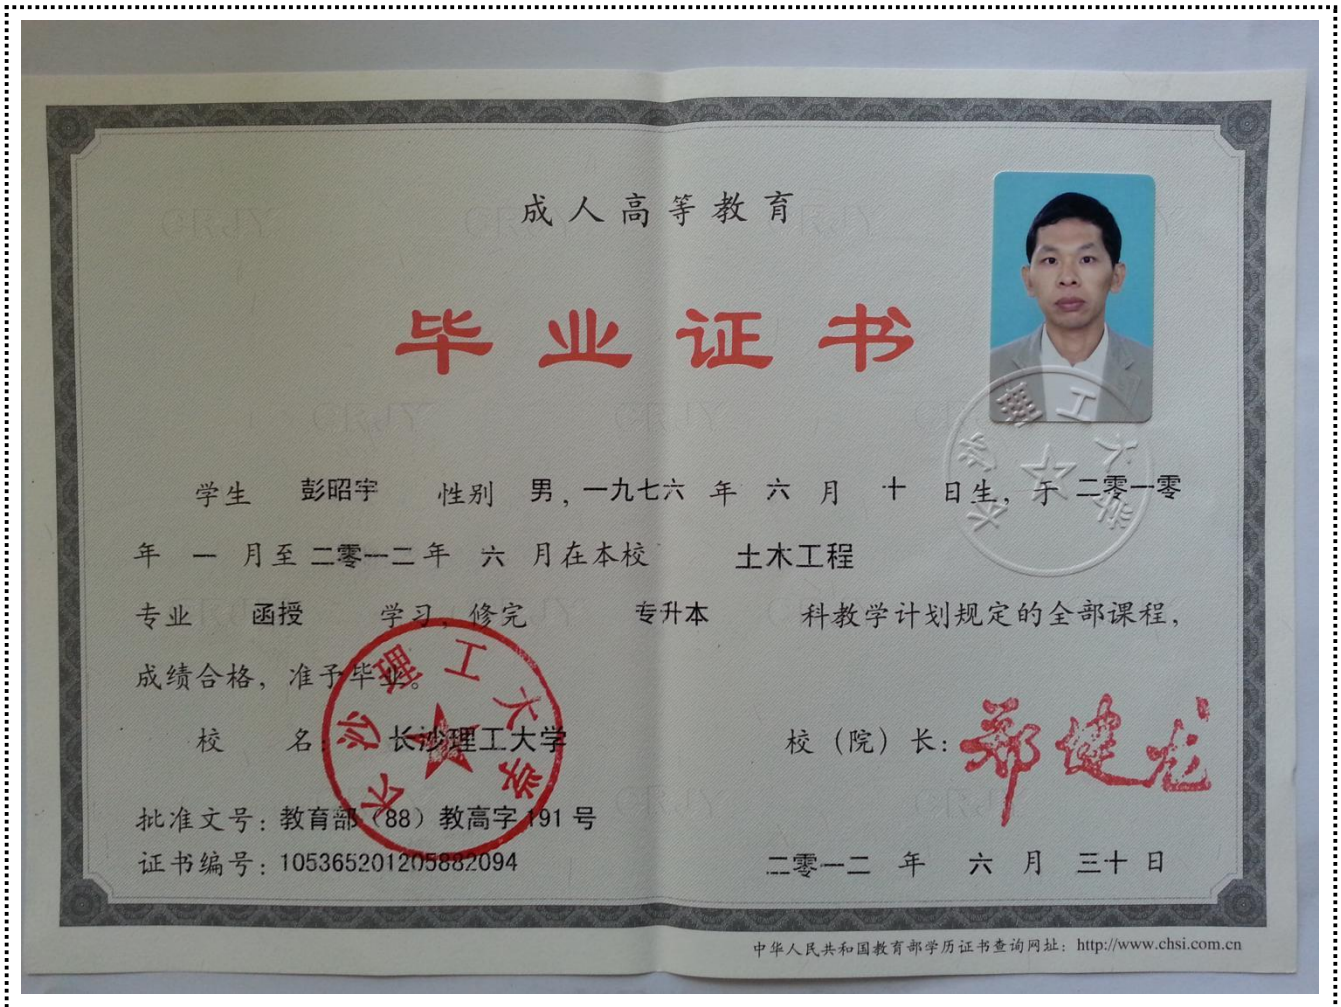 成人高等教育
毕业证书
学生 彭昭宇 性别 男，一九七六 年 六 月 十 日生，于 二零一零
年 一 月至 二零一二 年 六 月在本校 土木工程
专业 函授 学习，修完 专升本 科教学计划规定的全部课程，
成绩合格，准予毕业。
校 名： 长沙理工大学
校（院）长：郑健龙
批准文号：教育部（88）教高字 191 号
证书编号：105365201205882094
二零一二 年 六 月 三十 日
中华人民共和国教育部学历证书查询网址：http://www.chsi.com.cn
长沙理工大学
长沙理工大学
CRJY
CRJY
CRJY
CRJY
CRJY